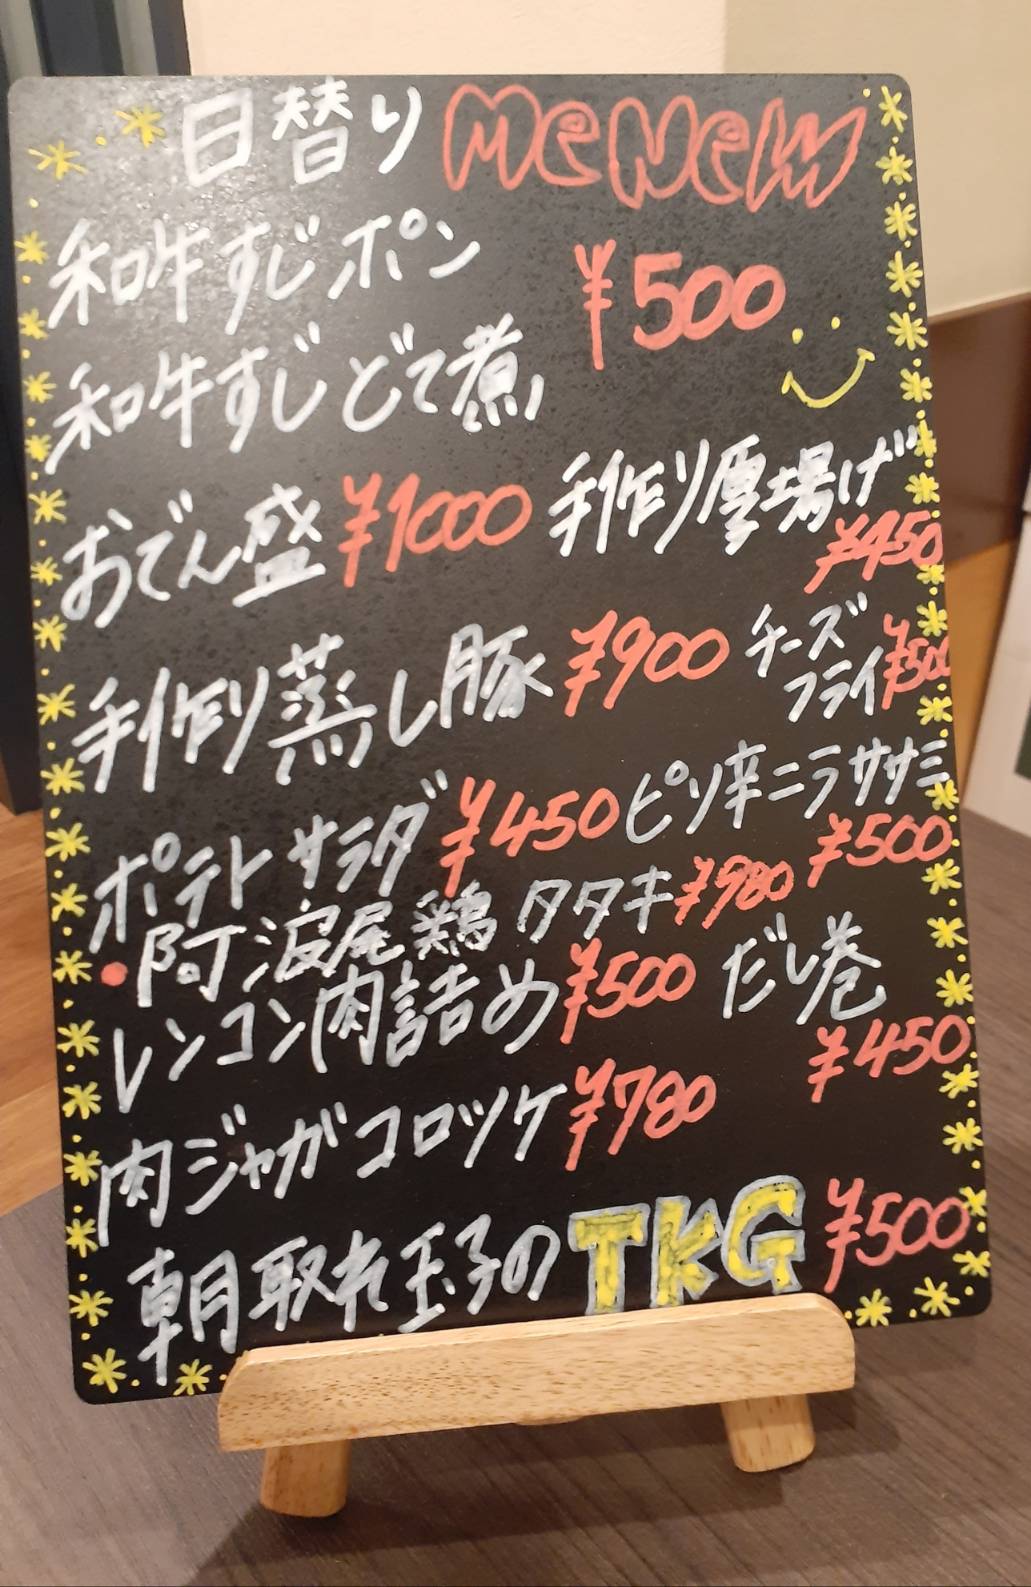 日替り MeNew
和牛すじポン
¥500
和牛すじどて煮
おでん盛 ¥1000
手作り厚揚げ
¥450
手作り蒸し豚 ¥900
チーズ
フライ ¥500
ポテトサラダ ¥450
ピリ辛ニラササミ
¥500
・阿波尾鶏タタキ ¥980
レンコン肉詰め ¥500
だし巻
¥450
肉ジャガコロッケ ¥780
朝取れ玉子のTKG ¥500